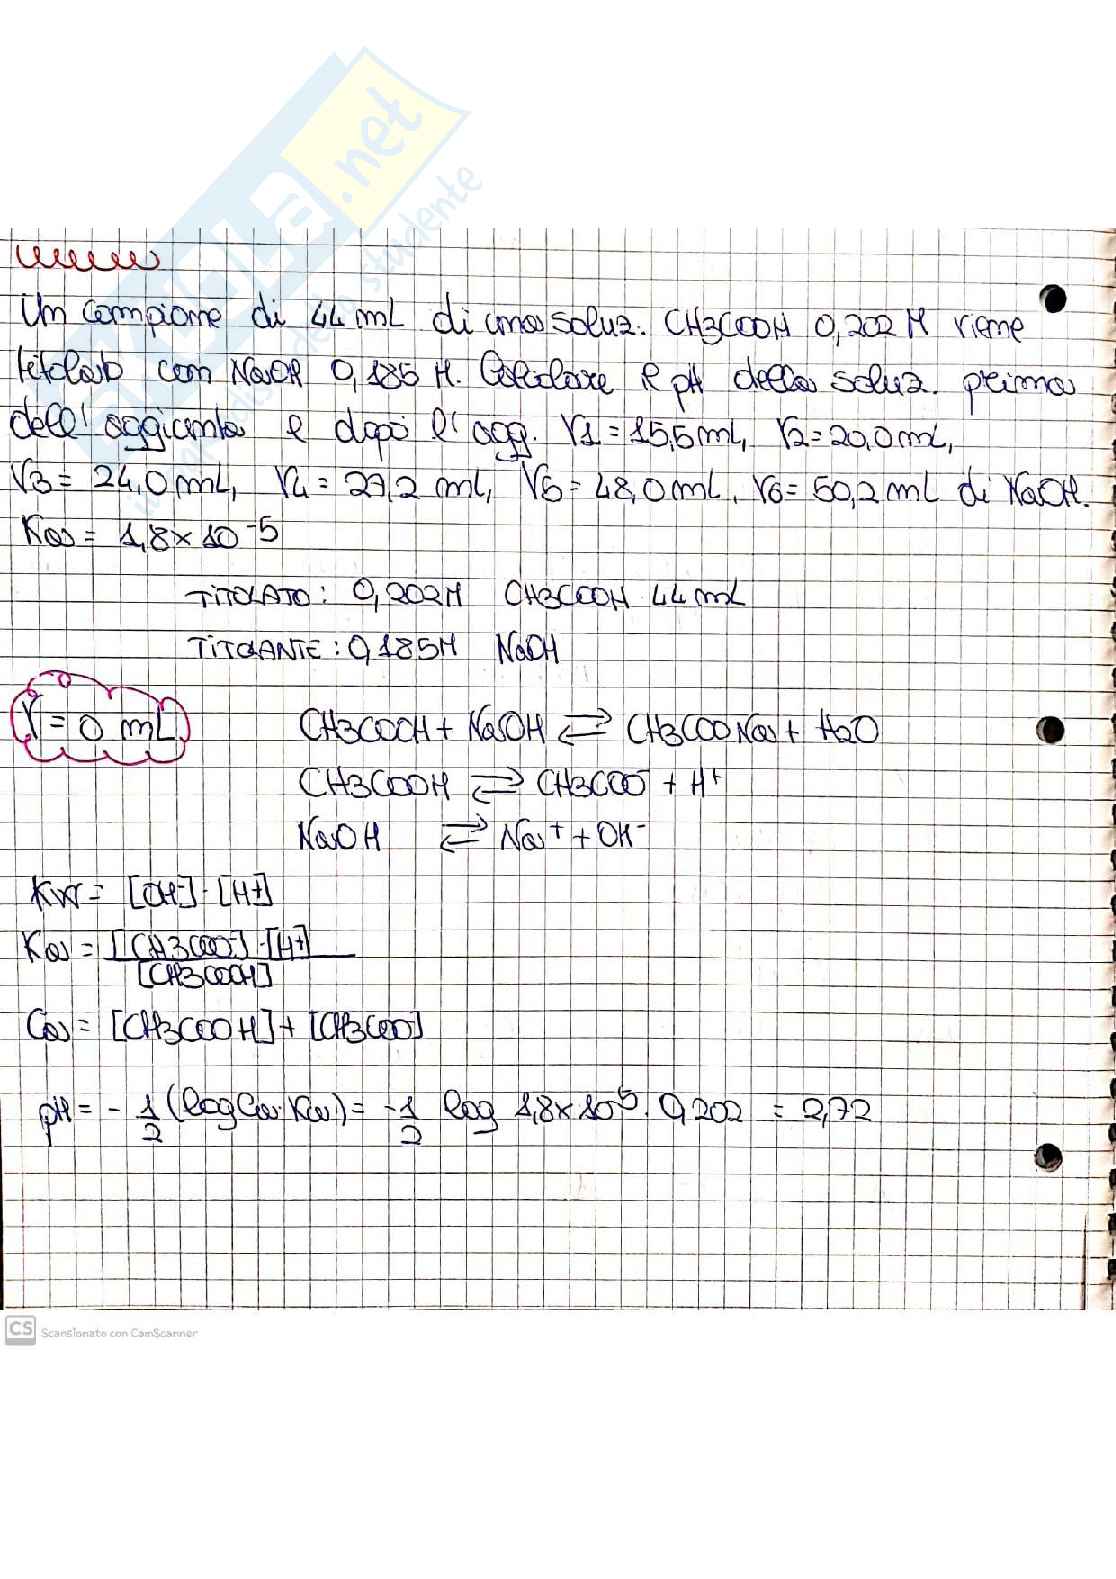 SKUOLA.net
il paradiso dello studente
Un campione di 44 mL di una soluz. CH3COOH 0,202 M viene
titolato con NaOH 0,185 M. Calcolare il pH della soluz. prima
dell'aggiunta e dopo l'agg. V1=15,5mL, V2=20,0mL,
V3=24,0mL, V4=27,2 mL, V5=48,0mL, V6=50,2mL di NaOH.
Ka= 1,8×10-5
TITOLATO: 0,202M CH3COOH 44mL
TITOLANTE: 0,185M NaOH
V=0 mL
CH3COOH + NaOH ⇌ CH3COONa + H2O
CH3COOH ⇌ CH3COO- + H+
NaOH ⇌ Na+ + OH-
Kw= [OH-]·[H+]
Ka= [CH3COO-]·[H+]
[CH3COOH]
Ca= [CH3COOH]+[CH3COO]
pH= - 1/2 (log Ca·Ka)= -1/2 log 1,8×10-5 · 0,202 = 2,72
CS Scansionato con CamScanner